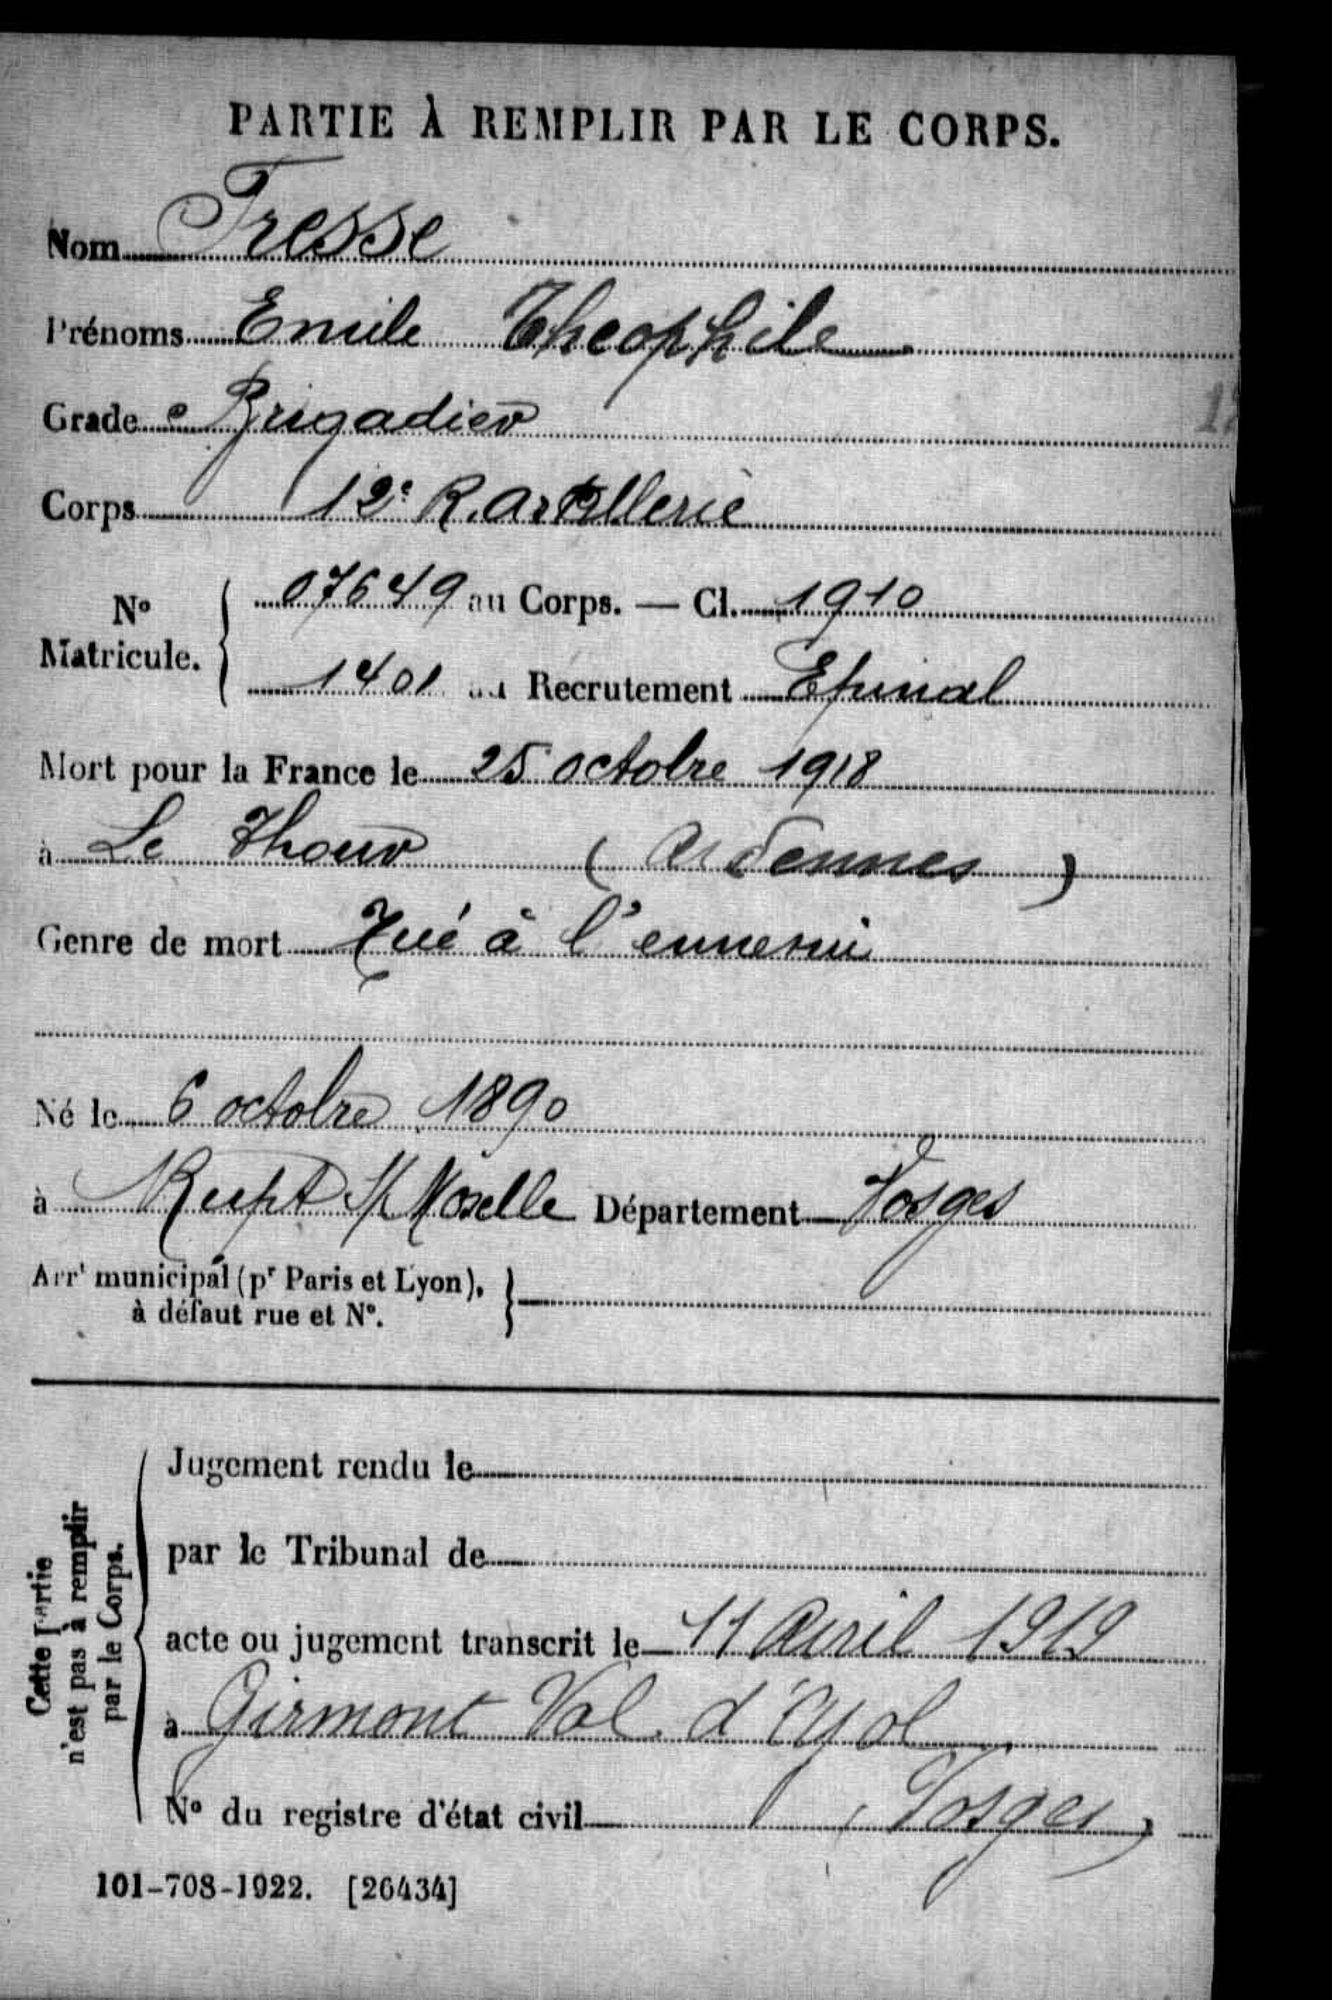 PARTIE À REMPLIR PAR LE CORPS.
Nom Tresse
Prénoms Emile Theophile
Grade Brigadier
Corps 12e R. Artillerie
No Matricule. 07649 au Corps. — Cl. 1910
1401 au Recrutement Epinal
Mort pour la France le 25 octobre 1918
à Le Thour (Ardennes)
Genre de mort Tué à l'ennemi
Né le 6 octobre 1890
à Rupt S/ Moselle Département Vosges
Arrt municipal (pr Paris et Lyon),
à défaut rue et No.
Cette Partie
n'est pas à remplir
par le Corps.
Jugement rendu le
par le Tribunal de
acte ou jugement transcrit le 11 Avril 1919
à Girmont Val d'Ajol
No du registre d'état civil (Vosges)
101-708-1922. [26434]